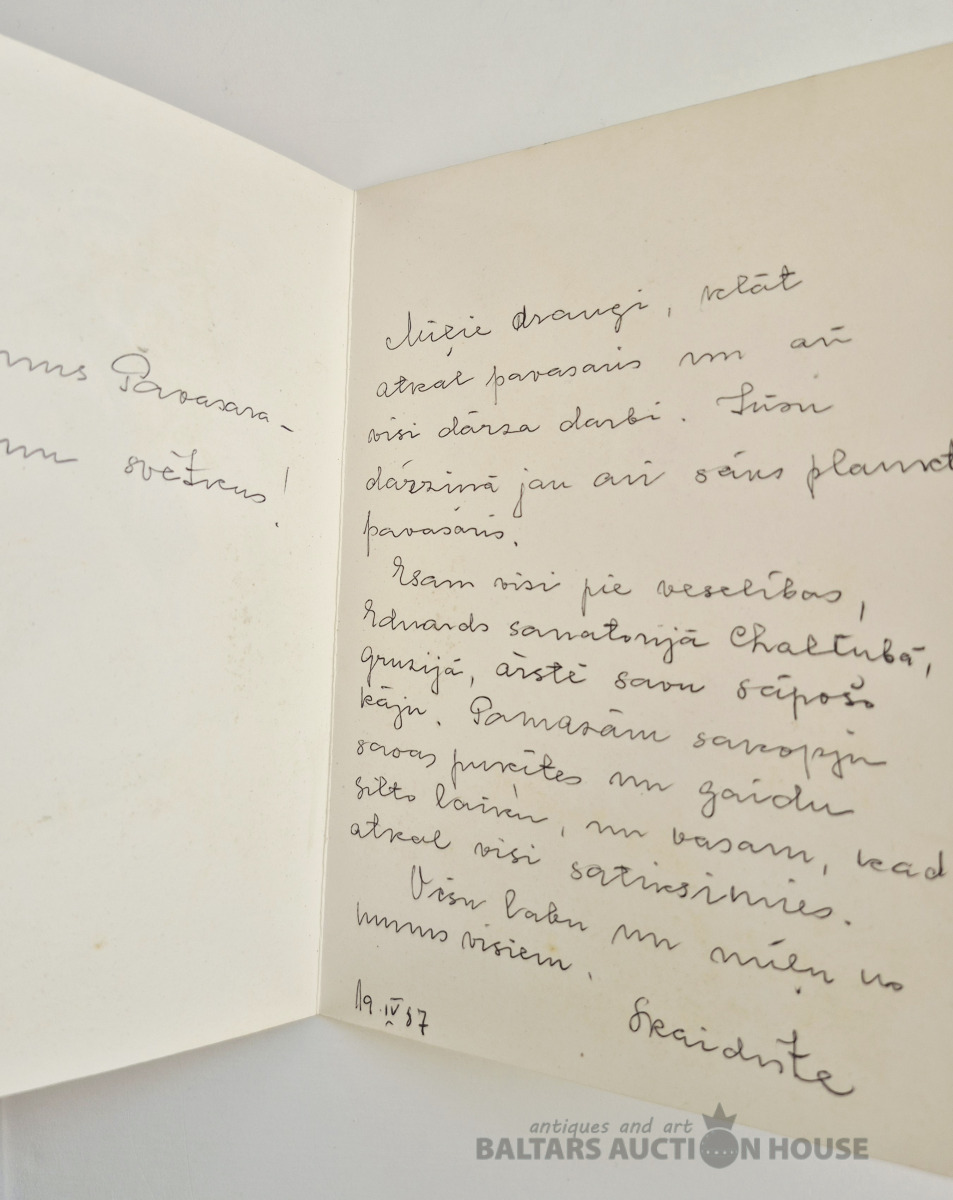 Pavasara-
svētkus!
Mīļie draugi, klāt
atkal pavasaris un arī
visi dārza darbi. Jūsu
dārziņā jau arī sācs
pavasaris.
Esam visi pie veselības,
Eduards sanatorijā Chaltubā,
Gruzijā, ārstē savu sāpošo
kāju. Pamazām sakopju
savas puķītes un gaidu
silto laiku, un vasaru, kad
atkal visi satiksimies.
Visu labu un mīļu no
mums visiem.
19.IV 87
Skaidrīte
antiques and art
BALTARS AUCTION HOUSE